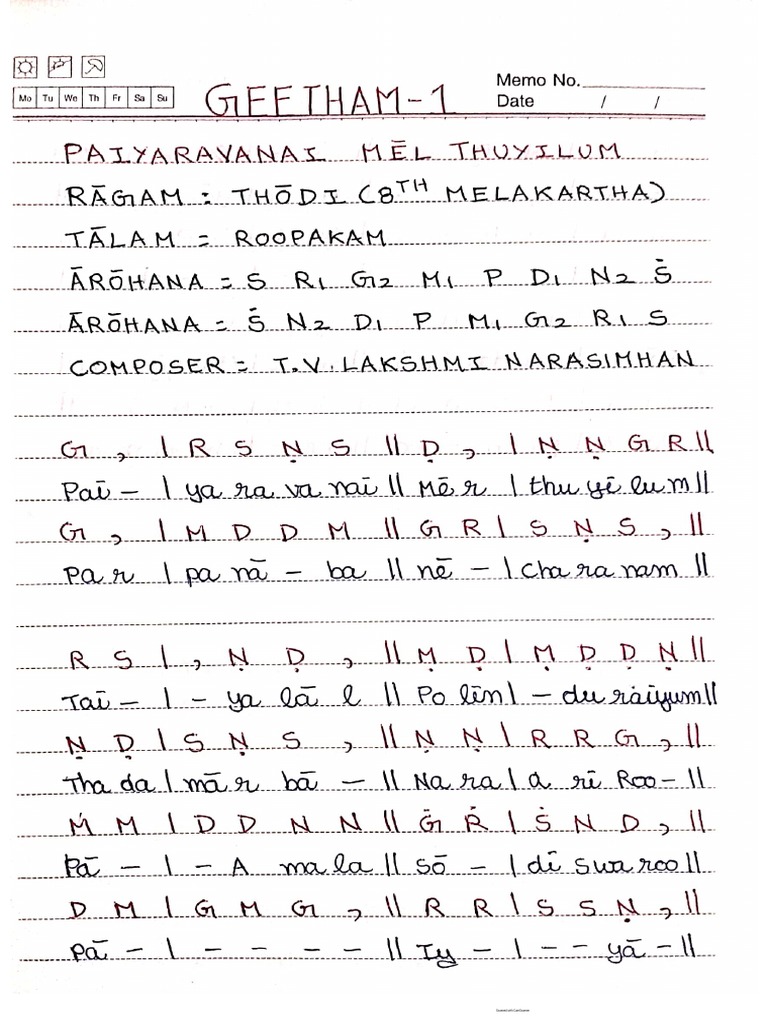 Mo Tu We Th Fr Sa Su
GEETHAM-1
Memo No.
Date / /
PAIYARAVANAI MĒL THUYILUM
RĀGAM : THŌDI (8TH MELAKARTHA)
TĀLAM = ROOPAKAM
ĀRŌHANA = S R₁ G₂ M₁ P D₁ N₂ Ṡ
ĀRŌHANA = Ṡ N₂ D₁ P M₁ G₂ R₁ S
COMPOSER = T.V. LAKSHMI NARASIMHAN
G , | R S Ṇ S || Ḍ , | Ṇ Ṇ G R ||
Paī – | ya ra va nai || Mēr | thu yē lum ||
G , | M D D M || G R | S Ṇ S , ||
Pa r | pa nā – ba || nē – | cha ra nam ||
R S | , Ṇ Ḍ , || Ṃ Ḍ | Ṃ Ḍ Ḍ Ṇ ||
Taī – | – ya lā l || Po līn | – du raiyum ||
Ṇ Ḍ | S Ṇ S , || Ṇ Ṇ | R R G , ||
Tha da | mār bā – || Na ra | a rī Roo – ||
Ṁ M | D D N N || Ġ Ṙ | Ṡ N D , ||
Pā – | – A ma la || Sō – | dī swa roo ||
D M | G M G , || R R | S S Ṇ , ||
Pā – | – – – – || Iy – | – – yā – ||